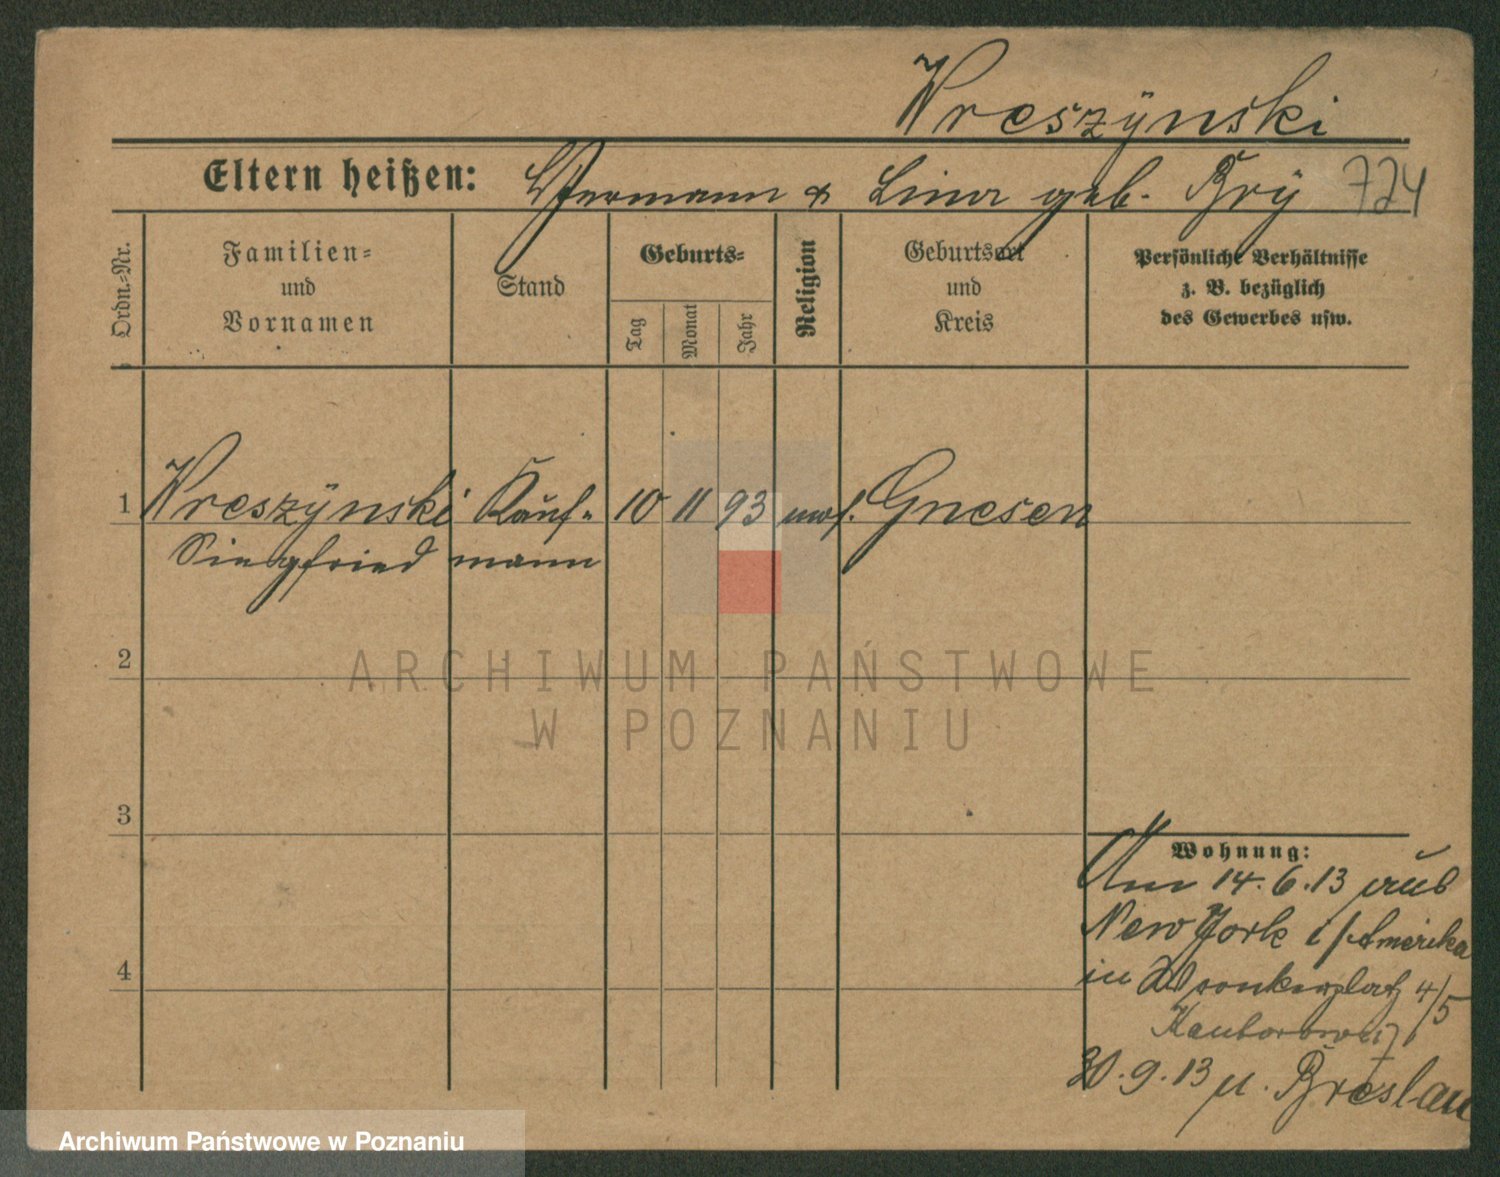 Wreszÿnski
Eltern heißen: Hermann & Lina geb. Brÿ 724
Ordn.-Nr.
Familien-
und
Vornamen
Stand
Geburts-
Tag
Monat
Jahr
Religion
Geburtsort
und
Kreis
Persönliche Verhältnisse
z. B. bezüglich
des Gewerbes usw.
1 Wreszÿnski Kauf- 10 11 93 mos. Gnesen
Siegfried mann
2
ARCHIWUM PAŃSTWOWE
W POZNANIU
3
Wohnung:
Am 14.6.13 aus
New York i/Amerika
in Wronkerplatz 4/5
30.9.13 n. Breslau
4
Archiwum Państwowe w Poznaniu